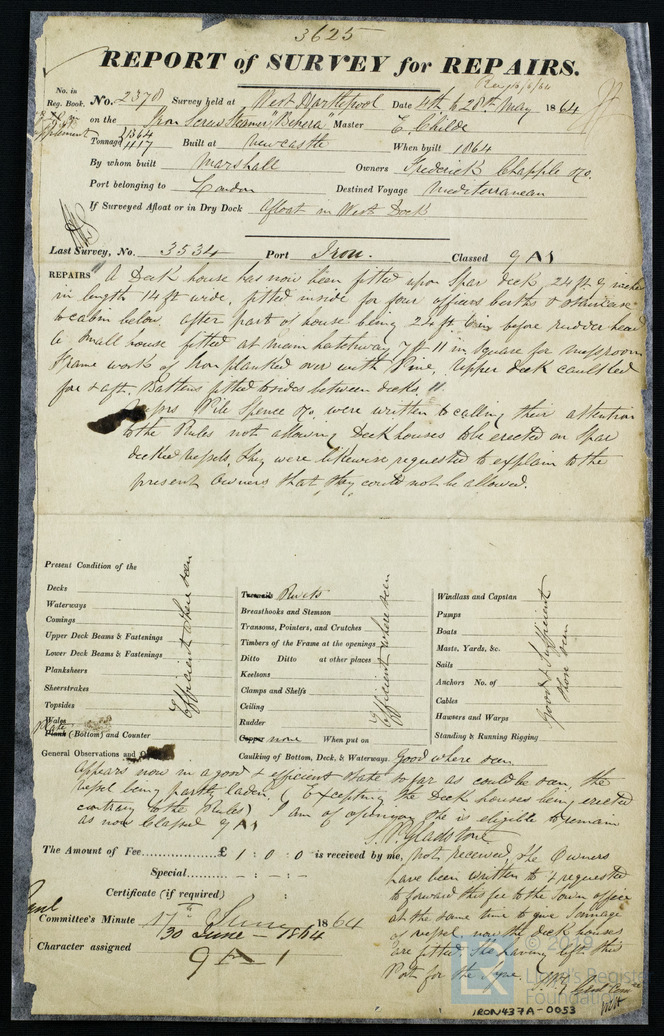 3625
REPORT of SURVEY for REPAIRS.
No. in
Reg. Book.
Supplement
No. 2370 Survey held at West Hartlepool Date 4th to 28th May 1864
on the Iron Screw Steamer "Behera" Master E. Childe
Tonnage 1364 417 Built at Newcastle When built 1864
By whom built Marshall Owners Frederick Chapple &Co.
Port belonging to London Destined Voyage Mediterranean
If Surveyed Afloat or in Dry Dock Afloat in West Dock
Last Survey, No. 3534 Port Iron. Classed 9 A1
REPAIRS A Deck house has now been fitted upon Spar deck, 24 ft 9 inches
in length 14 ft wide, fitted inside for four officers berths & staircase
to cabin below, after part of house being 24 ft before rudder head
a small house fitted at main hatchway 7 ft 11 in square for messroom
Frame work of Iron planked over with Pine, upper deck caulked
for & aft. Battens fitted to sides between decks.
Messrs Pile Spence &Co. were written to calling their attention
to the Rules not allowing Deck houses to be erected on Spar
decked vessels, they were likewise requested to explain to the
present Owners that they could not be allowed.
Present Condition of the
Decks
Waterways
Comings
Upper Deck Beams & Fastenings
Lower Deck Beams & Fastenings
Planksheers
Sheerstrakes
Topsides
Wales
Plate
Plank (Bottom) and Counter
Efficient where seen
Treenails Rivets
Breasthooks and Stemson
Transoms, Pointers, and Crutches
Timbers of the Frame at the openings
Ditto Ditto at other places
Keelsons
Clamps and Shelfs
Ceiling
Rudder
Copper none When put on
Efficient where seen
Windlass and Capstan
Pumps
Boats
Masts, Yards, &c.
Sails
Anchors No. of
Cables
Hawsers and Warps
Standing & Running Rigging
Good & Sufficient
where seen
General Observations and
Caulking of Bottom, Deck, & Waterways. Good where seen.
Appears now in a good & efficient state so far as could be seen, the
vessel being partly laden. (Excepting the Deck houses being erected
contrary to the Rules) I am of opinion she is eligible to remain
as now Classed 9 A1
The Amount of Fee............£ 1 : 0 : 0 is received by me, not received, the Owners
have been written to & requested
to forward this fee to the London office
at the same time to give Tonnage
of vessel now the deck houses
are fitted. She having left this
Port for the Tyne.
Special...... - : - : -
Certificate (if required) :
Committee's Minute 17th June 1864
30 June - 1864
Character assigned
9 A 1
© 2019
Lloyd's Register
Foundation
IRON437A-0053